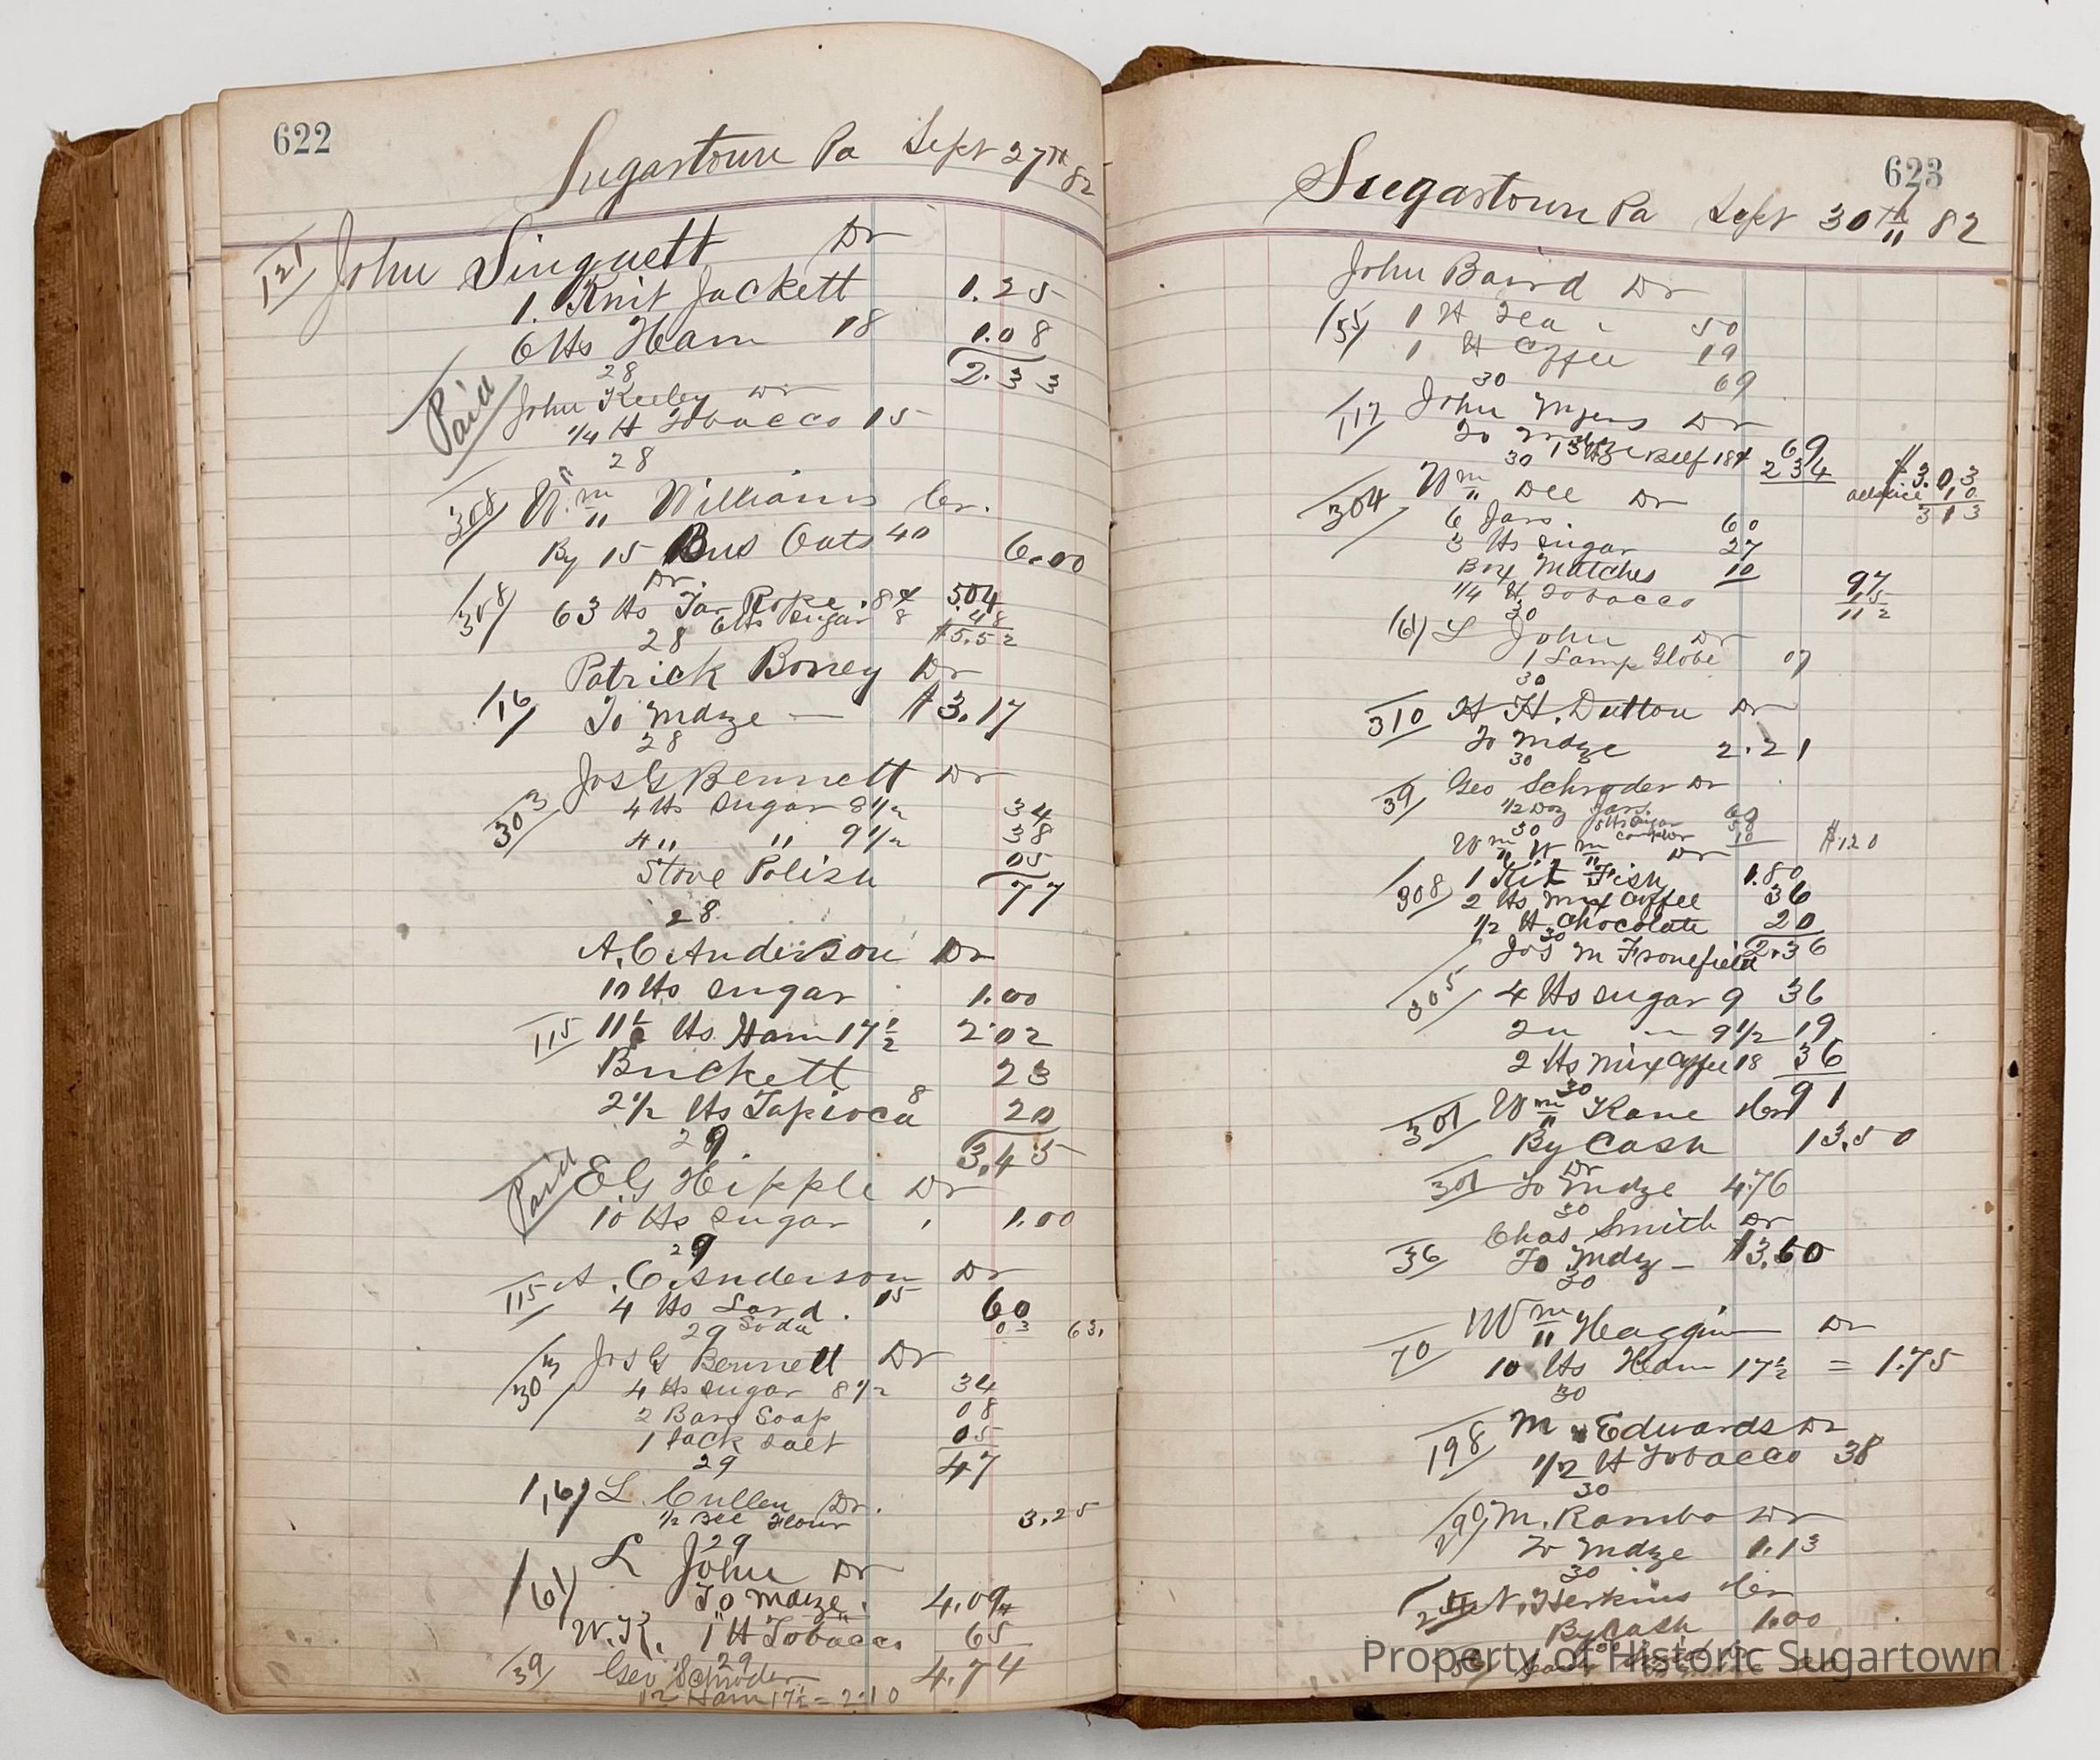 622
Sugartown Pa Sept 27th 82
121 John Singuett Dr
1. Knit Jackett 1.25
6 lbs Ham 18 1.08
2.33
28
Paid John Keeley Dr
1/4 lb Tobacco 15
28
308 Wm Williams Cr.
By 15 Bus Oats 40 6.00
Dr.
308 63 lbs Tar Rope 8 5.04
6 lbs Sugar 8 .48
28 $5.52
Patrick Boney Dr
116 To Mdze — $3.17
28
Jos G Bennett Dr
303 4 lbs Sugar 8 1/2 34
4 " " 9 1/2 38
Stove Polish 05
77
28
A. C Anderson Dr
10 lbs Sugar 1.00
115 11 1/2 lbs Ham 17 1/2 2.02
Buckett 23
2 1/2 lbs Tapioca 8 20
29. 3.45
Paid E G Hipple Dr
10 lbs Sugar 1.00
29
115 A. C Anderson Dr
4 lbs Lard. 15 60
Soda 03 63.
29
303 Jos G Bennett Dr
4 lbs Sugar 8 1/2 34
2 Bars Soap 08
1 Sack Salt 05
29 47
L Cullen Dr.
1/2 Bbl Flour 3.25
29
161 L John Dr
To Mdze. 4.09
W.K. 1 lb Tobacco 65
29 4.74
39 Geo Schroder
12 Ham 17 1/2 = 2.10
623
Sugartown Pa Sept 30th 82
John Baird Dr
155 1 lb Tea 50
1 lb Coffee 19
30 69
117 John Myers Dr
To Mdze 69
13 lbs Beef 18 2 34 $3.03
30 allspice 10
3 13
304 Wm Dee Dr
6 Jars. 60
3 lbs Sugar 27
Box Matches 10 97
1/4 lb Tobacco 15
30 112
161 L John Dr
1 Lamp Globe 07
30
310 H. H. Dutton Dr
To Mdze 2.21
30
39 Geo Schroder Dr
1/2 Doz Jars 60
5 lbs Sugar
30 10 $1.20
Wm Wm Dr
308 1 Kit Fish 1.80
2 lbs Mix Coffee 36
1/2 lb Chocolate 20
30 2.36
Jos M Fronefield
305 4 lbs Sugar 9 36
2 " — 9 1/2 19
2 lbs Mix Coffee 18 36
30 91
301 Wm Kane Cr
By Cash 13.50
Dr
301 To Mdze 4.76
30
Chas Smith Dr
36 To Mdz — $3.60
30
Wm Haggin Dr
70 10 lbs Ham 17 1/2 = 1.75
30
198 M Edwards Dr
1/2 lb Tobacco 38
30
290 M. Rambo Dr
To Mdze 1.13
30
N. Herkins Cr
By Cash 1.00
Property of Historic Sugartown